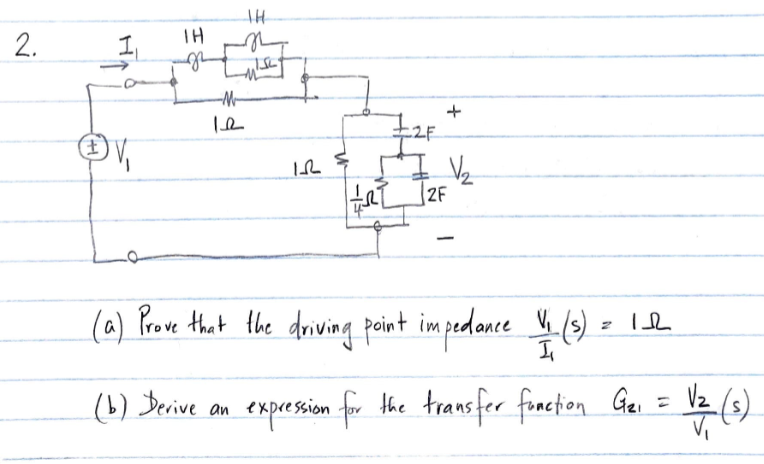 2.
I₁
1H
1H
1Ω
1Ω
+
2F
V₁
1Ω
V₂
1/4 Ω
2F
−
(a) Prove that the driving point impedance V₁/I₁ (s) = 1Ω
(b) Derive an expression for the transfer function G₂₁ = V₂/V₁ (s)